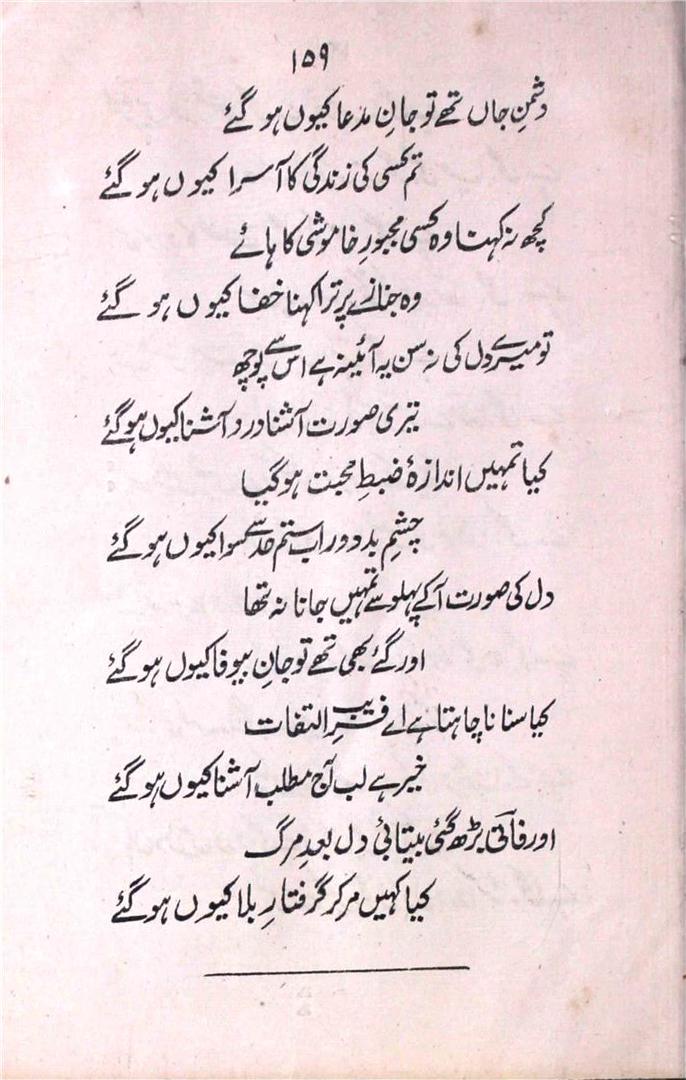 ۱۵۹
دشمنِ جاں تھے تو جانِ مدعا کیوں ہو گئے
تم کسی کی زندگی کا آسرا کیوں ہو گئے
کچھ نہ کہنا وہ کسی مجبورِ خاموشی کا ہائے
وہ جنازے پر ترا کہنا خفا کیوں ہو گئے
تو میرے دل کی نہ سن یہ آئینہ ہے اس سے پوچھ
تیری صورت آشنا درد آشنا کیوں ہو گئے
کیا تمہیں اندازۂ ضبطِ محبت ہو گیا
چشمِ بد دور اب ستم حد سے سوا کیوں ہو گئے
دل کی صورت آ کے پہلو سے تمہیں جانا نہ تھا
اور گئے بھی تھے تو جانِ بیوفا کیوں ہو گئے
کیا سنانا چاہتا ہے اے فریبِ التفات
خیر ہے لب آج مطلب آشنا کیوں ہو گئے
اور فانیؔ بڑھ گئی بیتابئ دل بعدِ مرگ
کیا کہیں مر کر گرفتارِ بلا کیوں ہو گئے